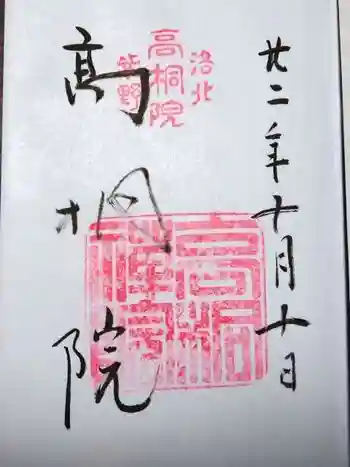 廿二年十月十日
洛北
高桐院
紫野
高桐院